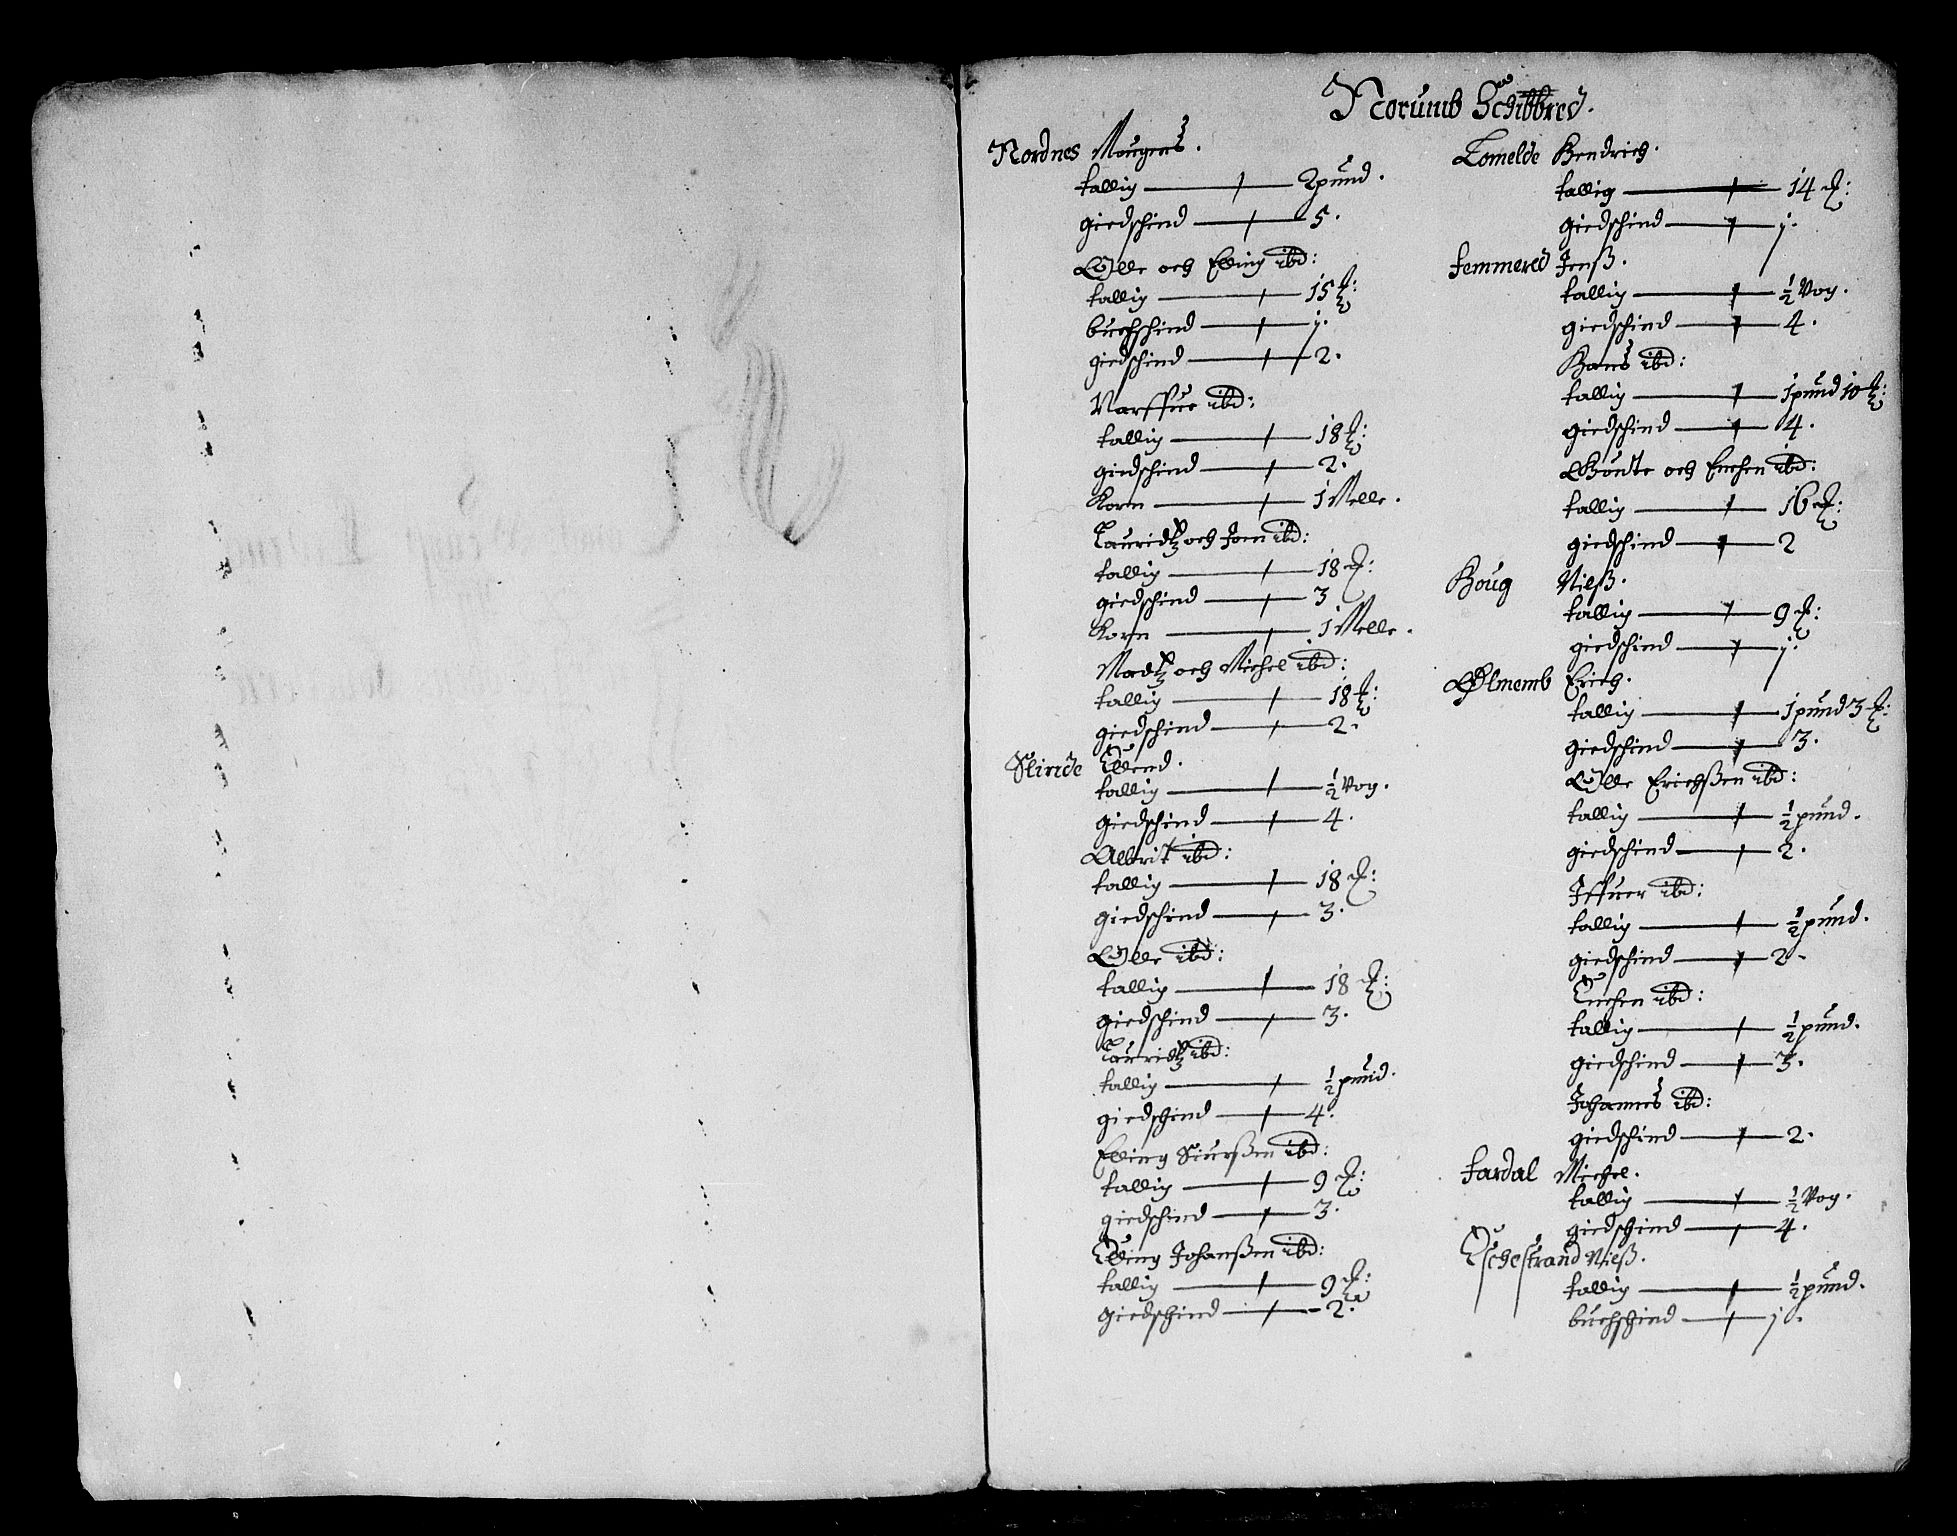 Norumb Schibbred.
Nordnes Mougens.
tallig — 2 pund.
giedschind — 5.
Olle och Elling ibd:
tallig — 15 ℔:
buchschind — j.
giedschind — 2.
Narffue ibd:
tallig — 18 ℔:
giedschind — 2.
Korn — 1 Melle.
Lauridtz och Jon ibd:
tallig — 18 ℔:
giedschind — 3
Korn — 1 Melle.
Madtz och Michel ibd:
tallig — 18 ℔:
giedschind — 2.
Slinde Ellend.
tallig — ½ Vog.
giedschind — 4.
Albrit ibd:
tallig — 18 ℔:
giedschind — 3.
Olle ibd:
tallig — 18 ℔:
giedschind — 3.
Lauridtz ibd:
tallig — ½ pund.
giedschind — 4.
Elling Siurßen ibd:
tallig — 9 ℔:
giedschind — 3.
Elling Johanßen ibd:
tallig — 9 ℔:
giedschind — 2.
Lomelde Hendrich.
tallig — 14 ℔:
giedschind — j.
Jenß.
tallig — ½ Vog.
giedschind — 4.
Hans ibd:
tallig — 1 pund 10 ℔:
giedschind — 4.
och Enchen ibd:
tallig — 16 ℔:
giedschind — 2
Houg Nielß.
tallig — 9 ℔:
giedschind — j.
Ølmemb Erich.
tallig — 1 pund 3 ℔:
giedschind — 3.
Olle Erichßen ibd:
tallig — ½ pund.
giedschind — 2.
Iffuer ibd:
tallig — ½ pund.
giedschind — 2.
Enchen ibd:
tallig — ½ pund.
giedschind — 3.
Johannes ibd:
giedschind — 2.
fardal Michel.
tallig — ½ Vog.
giedschind — 4.
Eschestrand Nielß.
tallig — ½ pund.
buchschind — j.